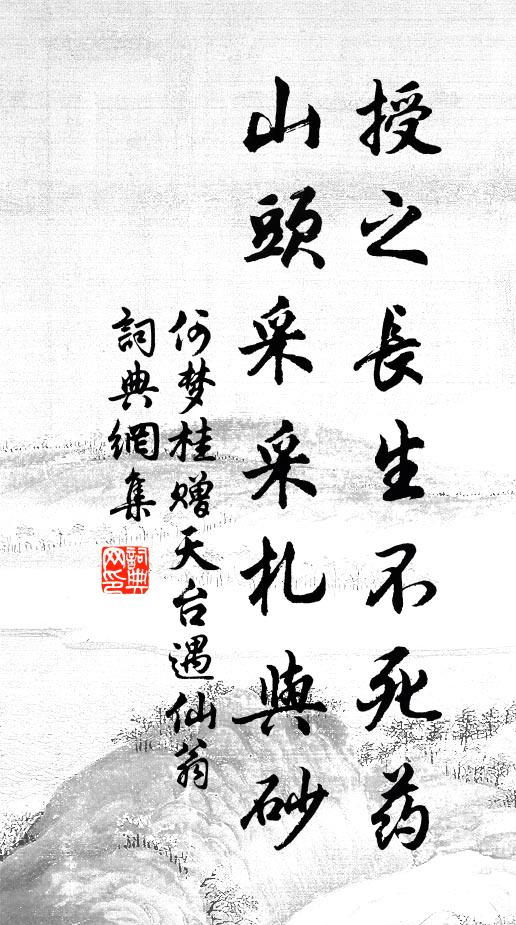 授之長生不死药
山頭采采札與砂
何梦桂赠天台遇仙翁
詞典網集
詞典网印